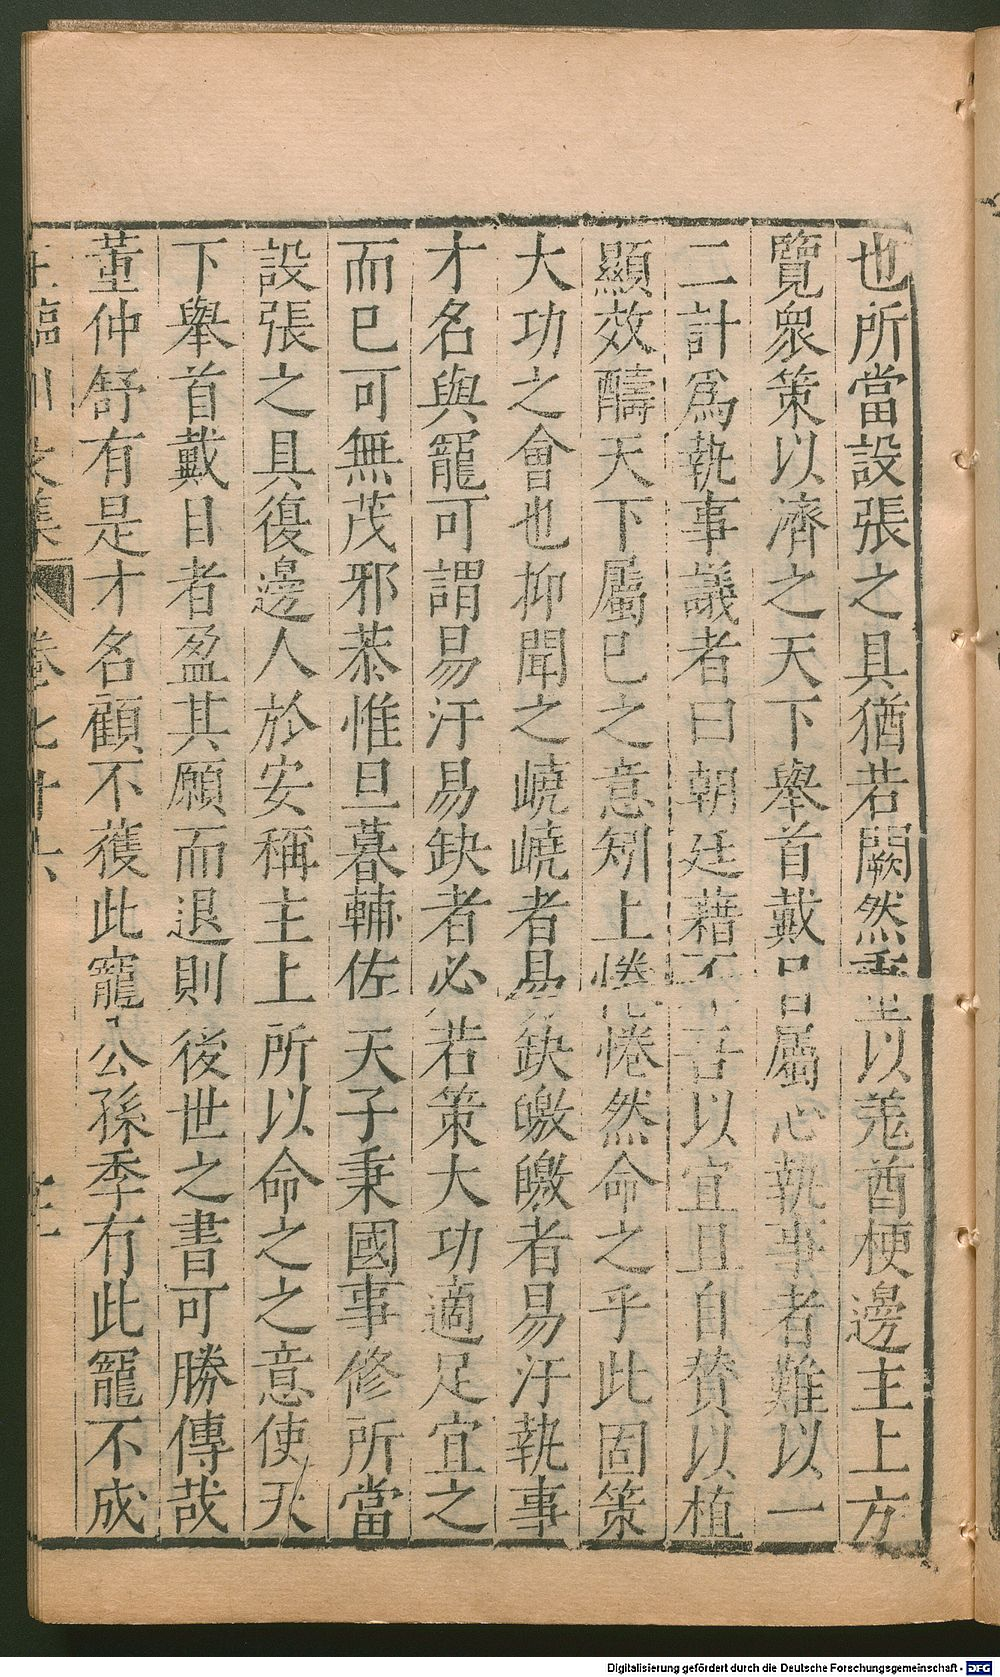 也所當設張之具猶若闕然重以羗酋梗邊主上方
覽衆策以濟之天下舉首戴目屬心執事者難以一
二計爲執事議者曰朝廷藉不吝以宜且自賛以植
顯效醻天下屬已之意矧上惓惓然命之乎此固策
大功之會也抑聞之嶢嶢者易缺皦皦者易汙執事
才名與寵可謂易汙易缺者必若策大功適足宜之
而已可無茂邪恭惟旦暮輔佐天子秉國事修所當
設張之具復邊人於安稱主上所以命之之意使天
下舉首戴目者盈其願而退則後世之書可勝傳哉
董仲舒有是才名顧不獲此寵公孫季有此寵不成
王臨川文集 卷七十六 十二
Digitalisierung gefördert durch die Deutsche Forschungsgemeinschaft - DFG